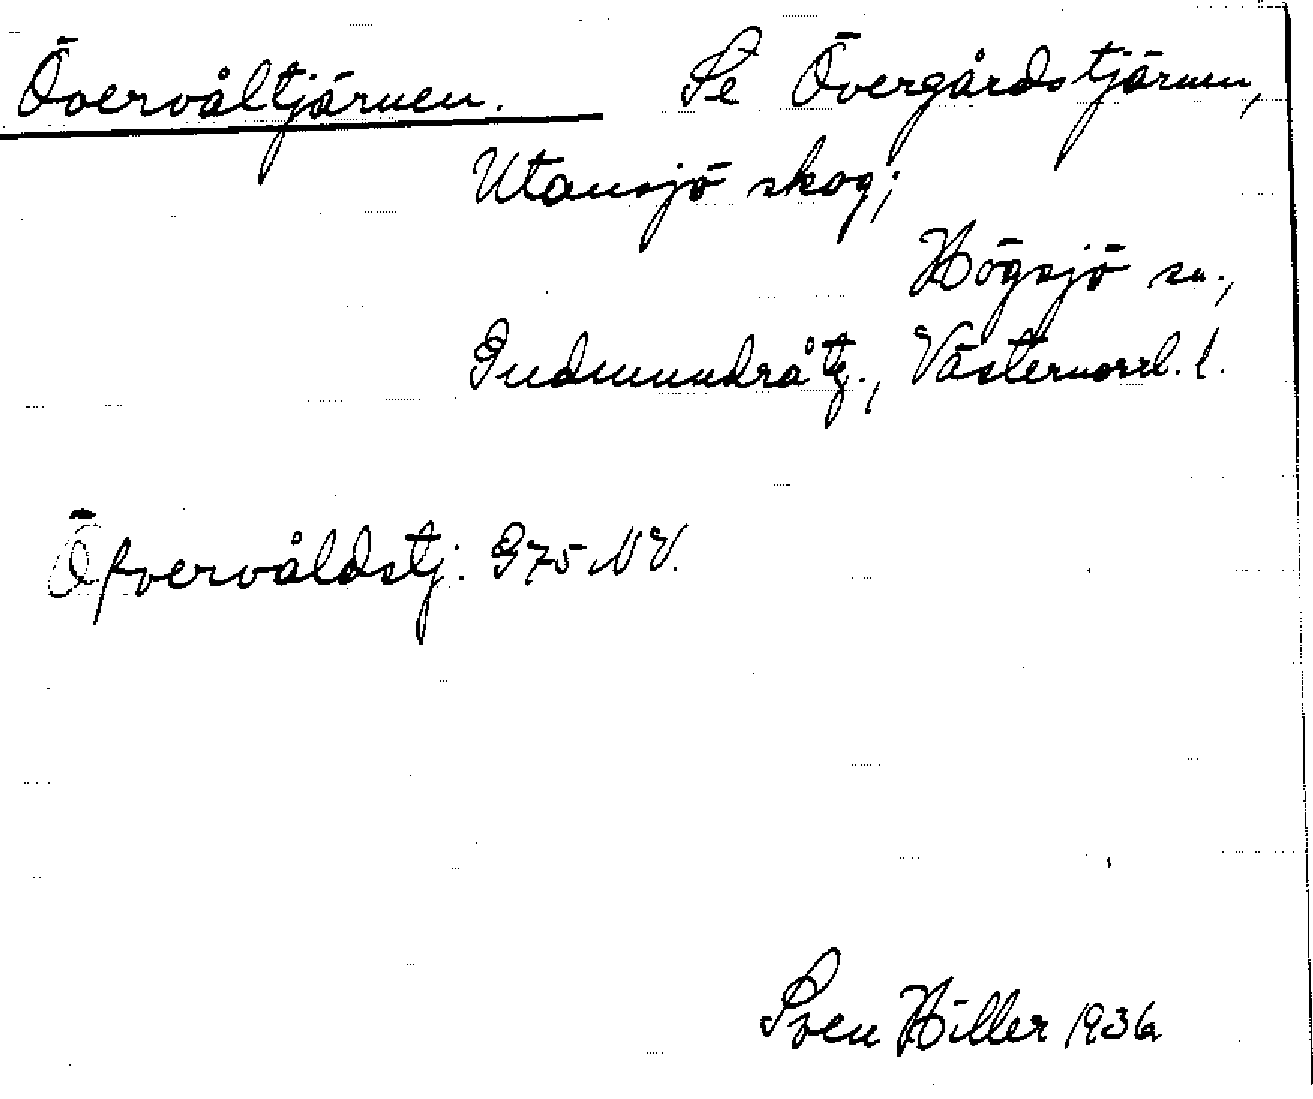 Övervåltjärnen. Se Övergårdstjärnen,
Utansjö skog;
Högsjö sn.,
Gudmundrå tg., Västernorrl. l.
Öfvervåldstj. G75 NV.
Sven Hiller 1936